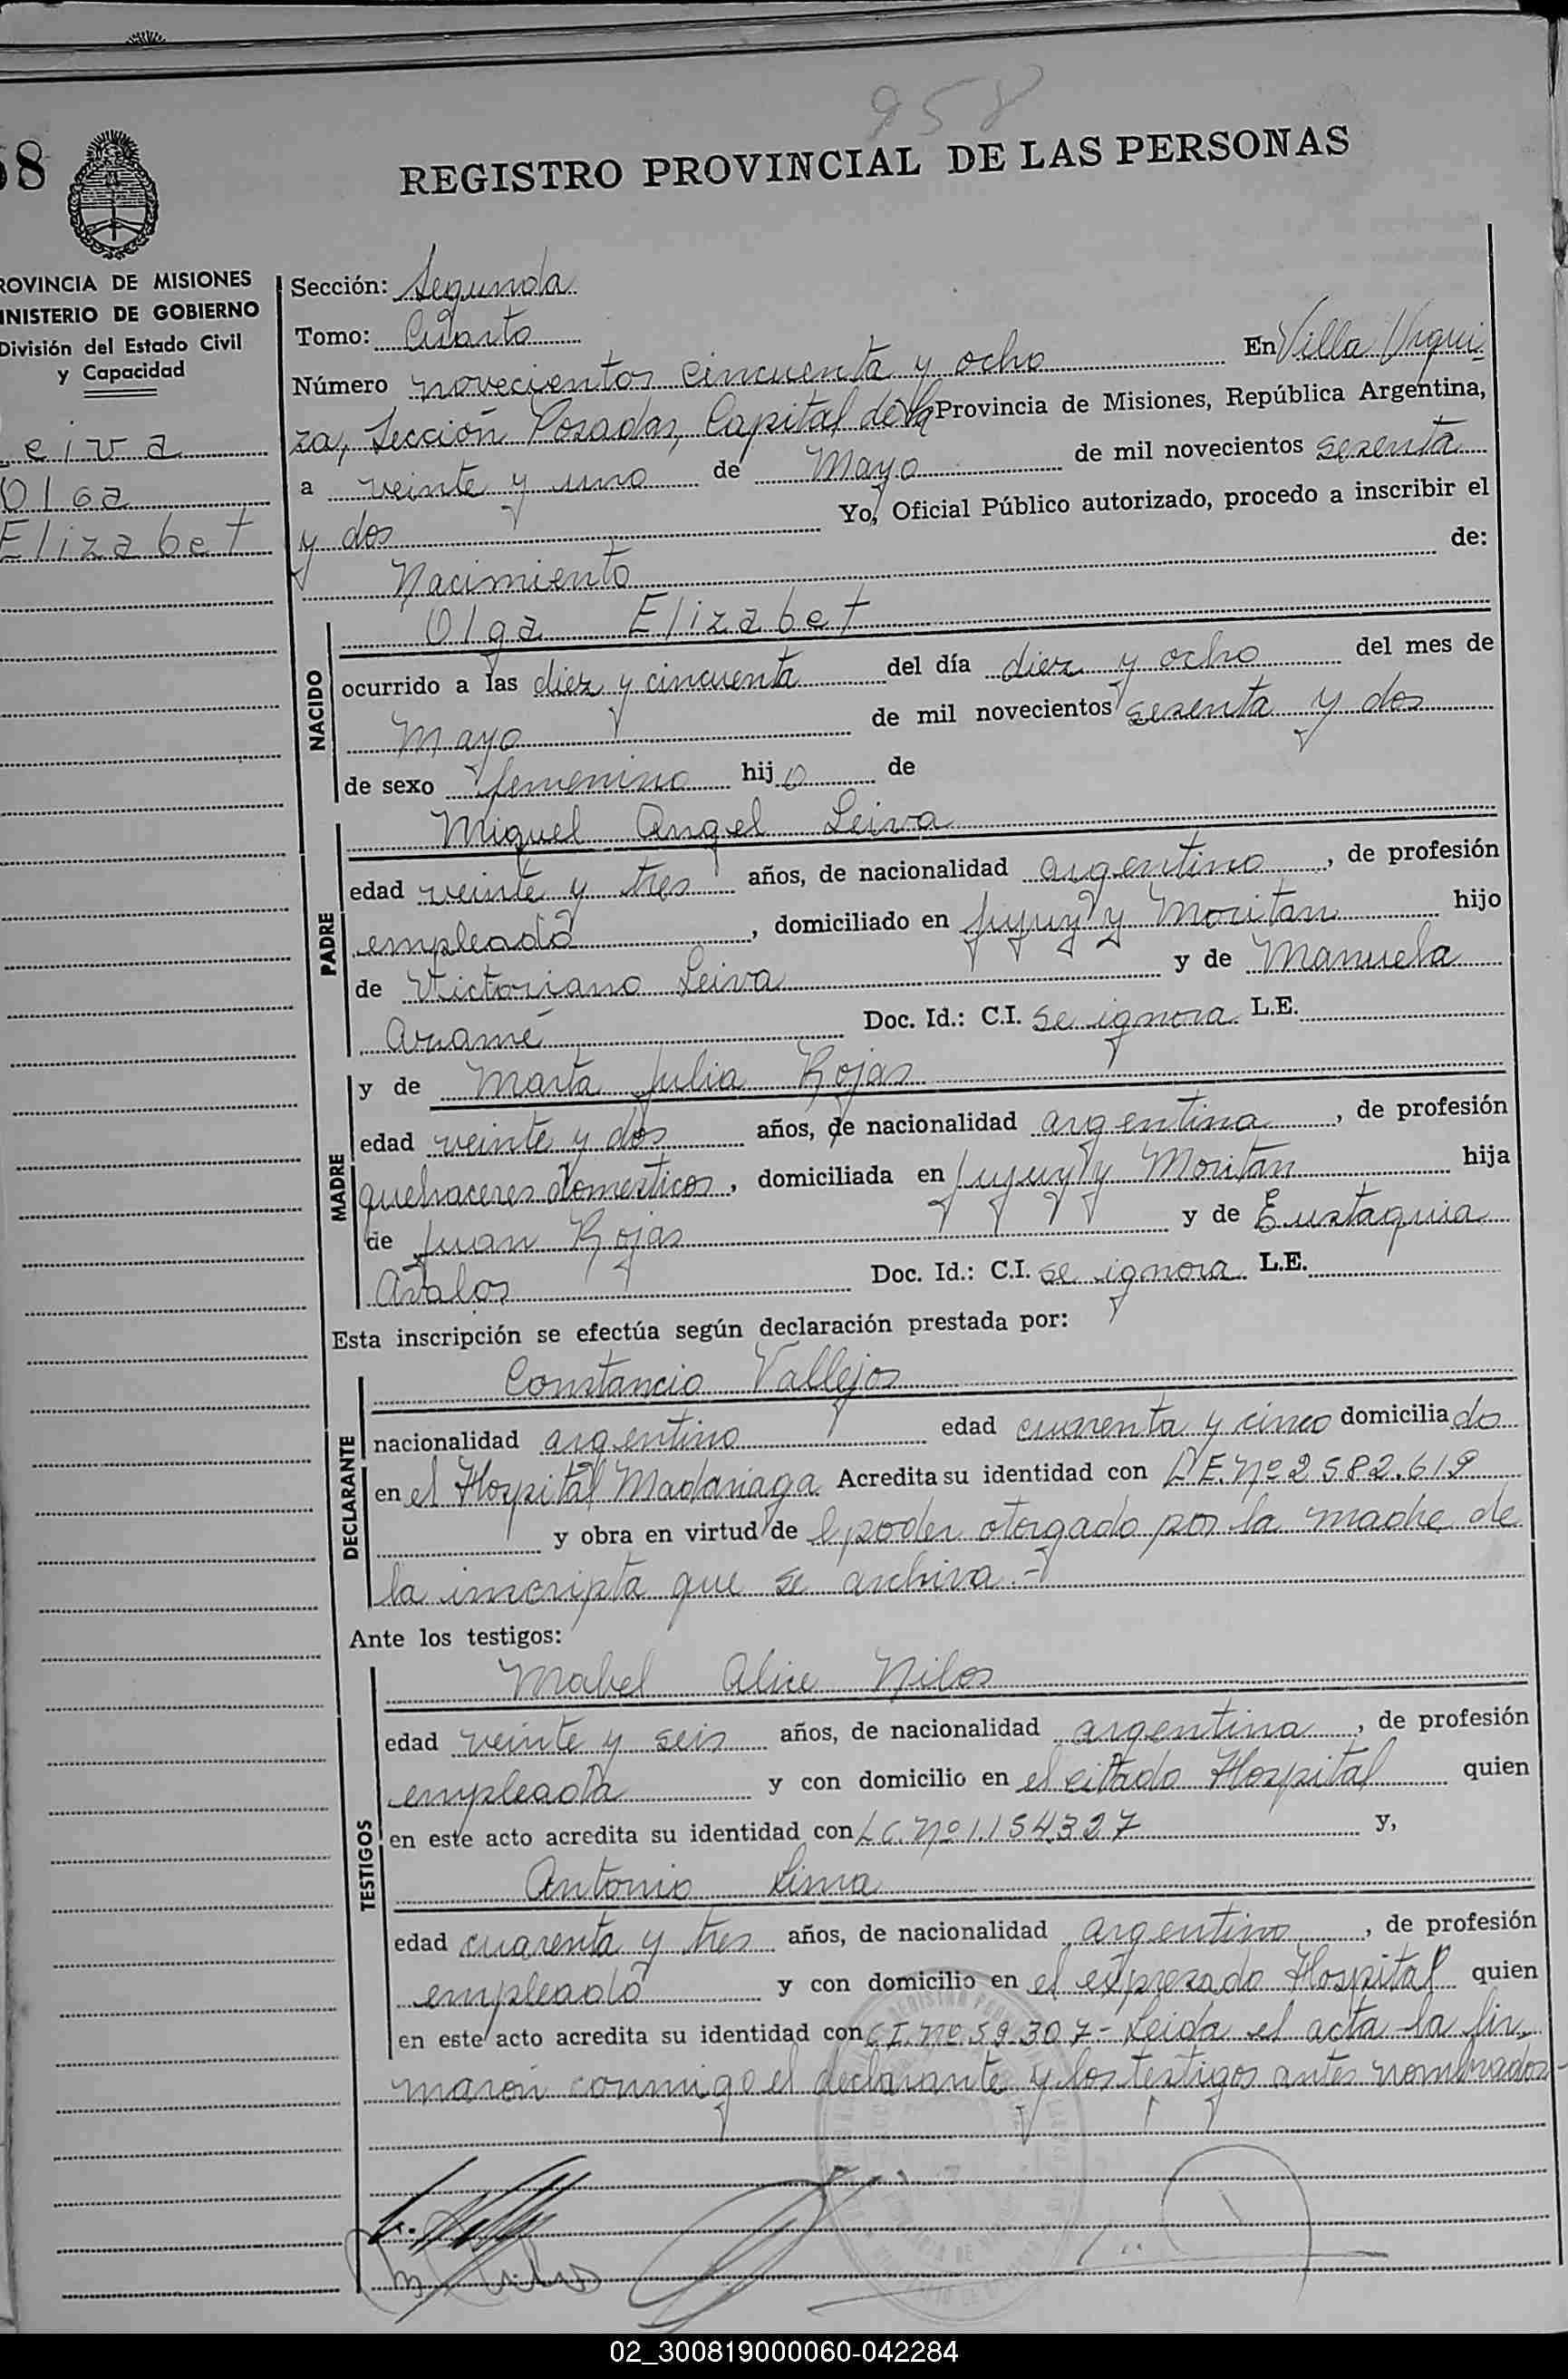 958
58
REGISTRO PROVINCIAL DE LAS PERSONAS
ROVINCIA DE MISIONES
INISTERIO DE GOBIERNO
División del Estado Civil
y Capacidad
Leiva
Olga
Elizabet
Sección: Segunda
Tomo: Cuarto
Número novecientos cincuenta y ocho En Villa Urqui
za, Sección Posadas, Capital de la Provincia de Misiones, República Argentina,
a veinte y uno de Mayo de mil novecientos sesenta
y dos Yo, Oficial Público autorizado, procedo a inscribir el
Nacimiento de:
NACIDO
Olga Elizabet
ocurrido a las diez y cincuenta del día diez y ocho del mes de
Mayo de mil novecientos sesenta y dos
de sexo femenino hijo de
PADRE
Miguel Angel Leiva
edad veinte y tres años, de nacionalidad argentino, de profesión
empleado, domiciliado en Jujuy y Moritan hijo
de Victoriano Leiva y de Manuela
Doc. Id.: C.I. se ignora L.E.
MADRE
y de Marta Julia Rojas
edad veinte y dos años, de nacionalidad argentina, de profesión
quehaceres domesticos, domiciliada en Jujuy y Moritan hija
de Juan Rojas y de Eustaquia
Avalos Doc. Id.: C.I. se ignora L.E.
Esta inscripción se efectúa según declaración prestada por:
DECLARANTE
Constancio Vallejos
nacionalidad argentino edad cuarenta y cinco domiciliado
en el Hospital Madariaga Acredita su identidad con L.E. Nº 2.582.619
y obra en virtud de l poder otorgado por la madre de
la inscripta que se archiva.-
Ante los testigos:
TESTIGOS
Mabel Alice Nilos
edad veinte y seis años, de nacionalidad argentina, de profesión
empleada y con domicilio en el citado Hospital quien
en este acto acredita su identidad con L.C. Nº 1.154.327 y,
Antonio Lima
edad cuarenta y tres años, de nacionalidad argentino, de profesión
empleado y con domicilio en el expresado Hospital quien
en este acto acredita su identidad con C.I. Nº 59.307- Leida el acta la fir-
maron conmigo el declarante y los testigos antes nombrados-
02_300819000060-042284